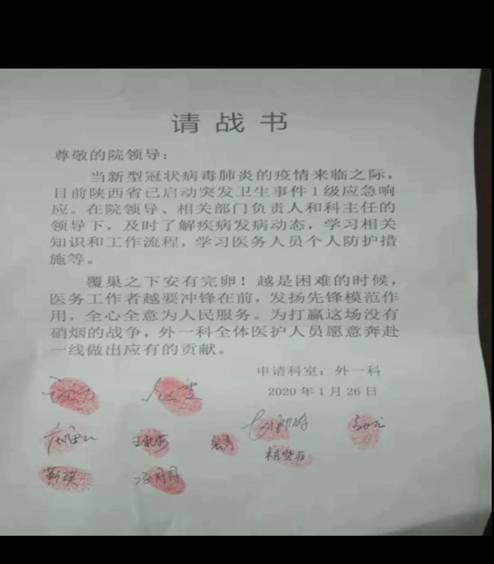 请战书
尊敬的院领导：
当新型冠状病毒肺炎的疫情来临之际，
目前陕西省已启动突发卫生事件1级应急响
应。在院领导、相关部门负责人和科主任的
领导下，及时了解疾病发病动态，学习相关
知识和工作流程，学习医务人员个人防护措
施等。
覆巢之下安有完卵！越是困难的时候，
医务工作者越要冲锋在前，发扬先锋模范作
用，全心全意为人民服务。为打赢这场没有
硝烟的战争，外一科全体医护人员愿意奔赴
一线做出应有的贡献。
申请科室：外一科
2020年1月26日